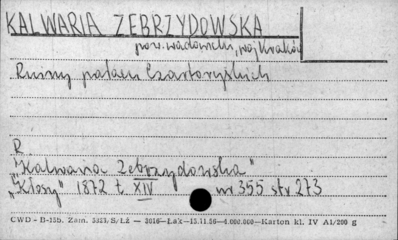 KALWARIA ZEBRZYDOWSKA
pow. wadowicki, woj. Kraków
Ruiny pałacu Czartoryskich
R
"Kalwaria Zebrzydowska"
"Kłosy" 1872 t. XIV nr 355 str 273
CWD - D-15b. Zam. 5323/S/Lż — 3016—Łak—15.11.50—4.000.000—Karton kl. IV A1/200 g